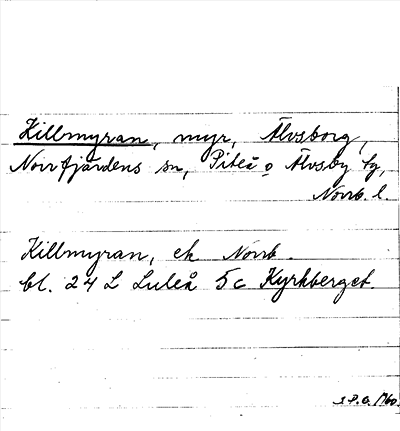 Killmyran, myr, Älvsborg,
Norrfjärdens sn, Piteå o Älvsby tg,
Norrb. l.
Killmyran, ek Norrb.
bl. 24 L Luleå 5c Kyrkberget.